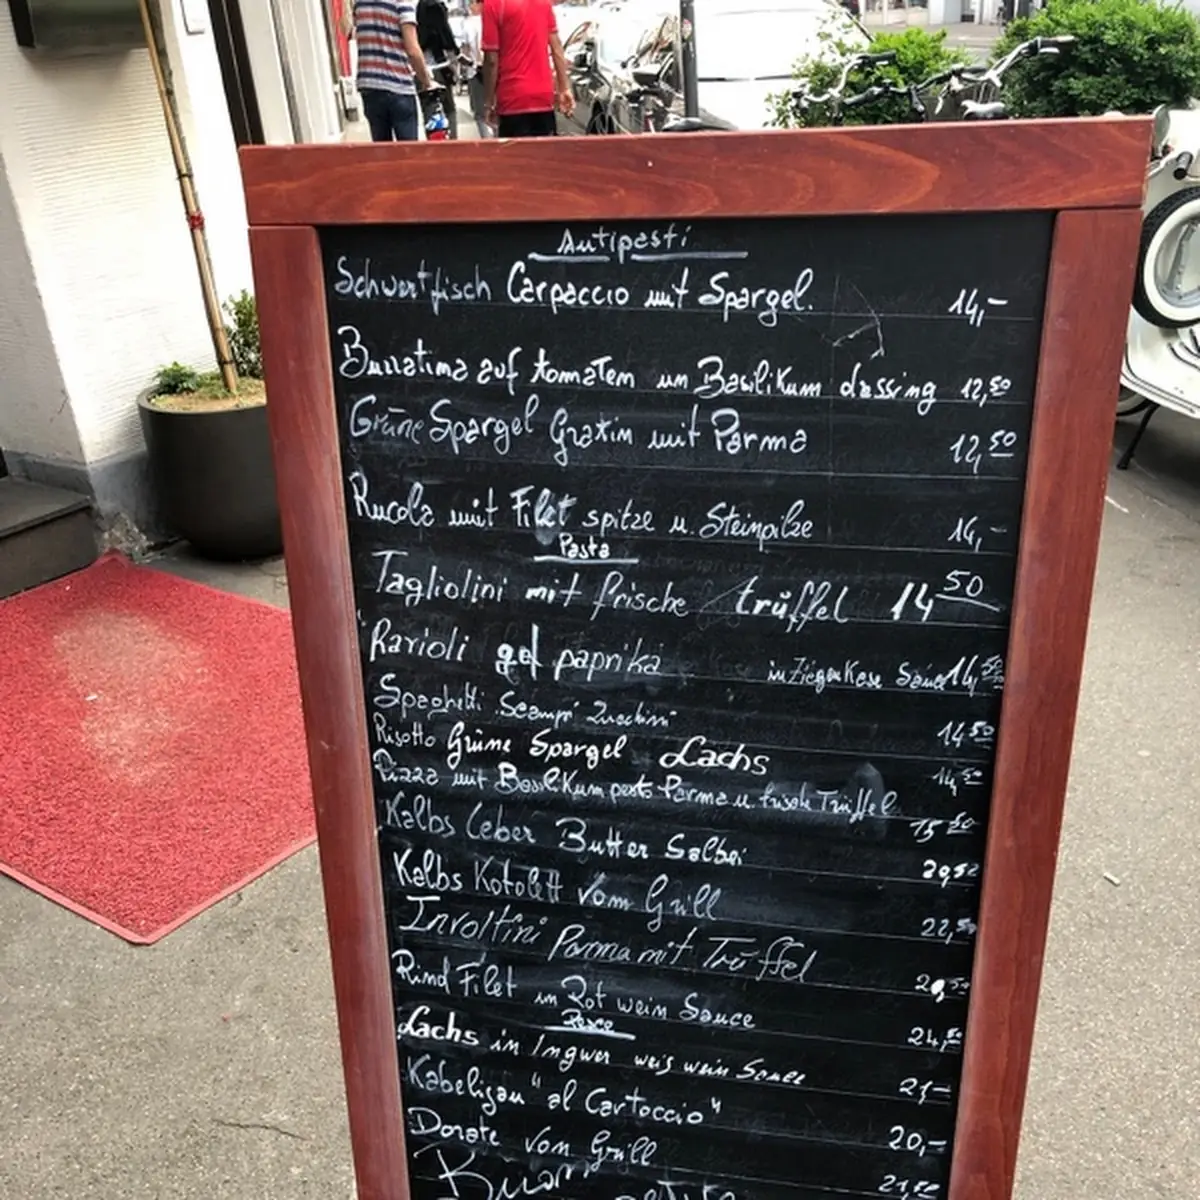 Antipasti
Schwertfisch Carpaccio mit Spargel. 14,-
Burratina auf tomaten un Basilikum dressing 12,50
Grüne Spargel Gratin mit Parma 12,50
Rucola mit Filet spitze u. Steinpilze 14,-
Pasta
Tagliolini mit frische trüffel 14 50
Ravioli gef paprika in Ziegenkese Sauce 14,50
Spaghetti Scampi Zucchini 14 50
Risotto Grüne Spargel Lachs 14,50
Pizza mit Basilikum pesto Parma u. frische Trüffel 15 50
Kalbs Leber Butter Salbei 20,50
Kalbs Kotolett Vom Grill 22,50
Involtini Parma mit Trüffel 20,50
Rind Filet in Rot wein Sauce 24,50
Pesce
Lachs in Ingwer weis wein Sauce 21,-
Kabeligau "al Cartoccio" 20,-
Dorate Vom Grill 21,50
Buon